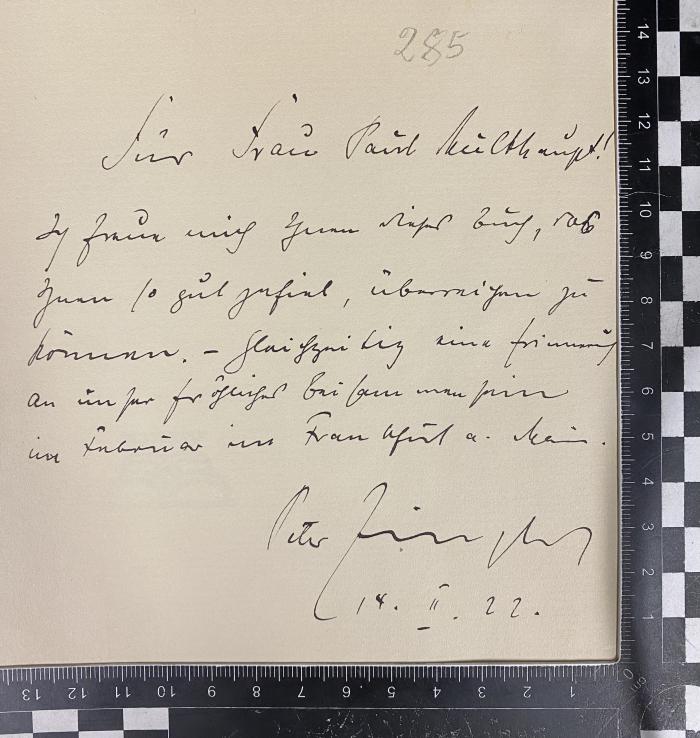 285
Für Frau Paul Multhaupt!
Ich freue mich Ihnen dieses Buch, das
Ihnen so gut gefiel, überreichen zu
können. – Gleichzeitig eine Erinnerung
an unser fröhliches Beisammensein
im Februar in Frankfurt a. Main.
Peter
14. II. 22.
14 13 12 11 10 9 8 7 6 5 4 3 2 1 0 cm
13 12 11 10 9 8 7 6 5 4 3 2 1